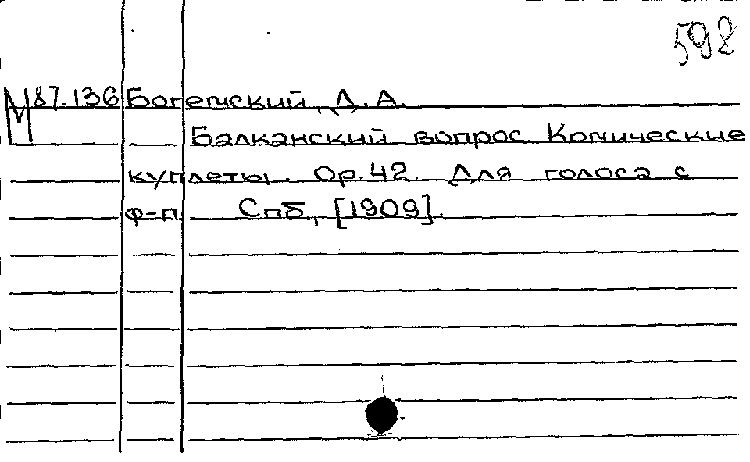 592
М 87.136 Богемский, Д. А.
Балканский вопрос Комические
куплеты. Ор. 42. Для голоса с
ф-п. Спб., [1909].